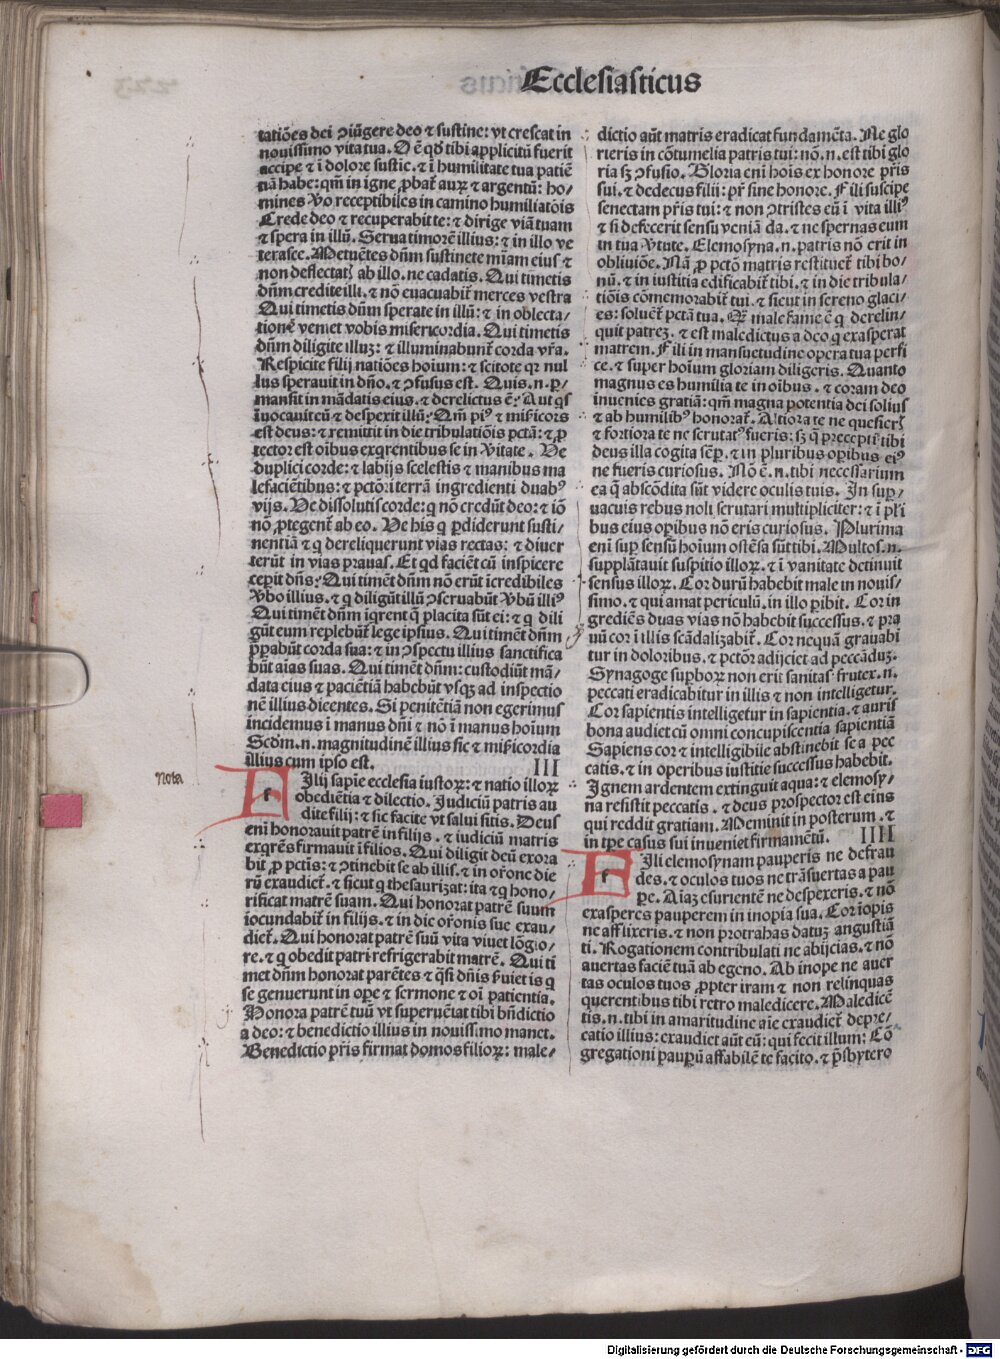 Ecclesiasticus
tatiōes dei ꝯiūgere deo ⁊ sustine: vt crescat in
nouissimo vita tua. Oē qđ tibi applicitū fuerit
accipe ⁊ ī dolore sustīe. ⁊ ī humilitate tua patiē
tiā habe: qm̄ in igne ꝓbat̄ aurꝝ ⁊ argentū: ho/
mines ꝟo receptibiles in camino humiliatōis
Crede deo ⁊ recuperabit te: ⁊ dirige viā tuam
⁊ spera in illū. Serua timorē illius: ⁊ in illo ve
terasce. Metuētes dn̄m sustinete miam eius ⁊
non deflectatꝭ ab illo. ne cadatis. Qui timetis
dn̄m credite illi. ⁊ nō euacuabit̄ merces vestra
Qui timetis dūm sperate in illū: ⁊ in oblecta/
tionē veniet vobis misericordia. Qui timetis
dn̄m diligite illuꝫ: ⁊ illuminabunt̄ corda vr̄a.
Respicite filij natiōes hoīum: ⁊ scitote qꝛ nul
lus sperauit in dn̄o. ⁊ ꝯfusus est. Quis. n. ꝑ/
mansit in mādatis eius. ⁊ derelictus ē: Aut qs
īuocauit eū ⁊ despexit illū: Qm̄ piꝰ ⁊ miẜicors
est deus: ⁊ remittit in die tribulatiōis pctā: ⁊ ꝓ
tector est oībus exqrentibus se in ꝟitate. Ve
duplici corde: ⁊ labijs scelestis ⁊ manibus ma
lefaciētibus: ⁊ pctōri terrā ingredienti duabꝰ
vijs. Ve dissolutis corde: q nō credūt deo: ⁊ iō
nō ꝓtegent̄ ab eo. Ve his q ꝑdiderunt susti/
nentiā ⁊ q dereliquerunt vias rectas: ⁊ diuer
terūt in vias prauas. Et qd faciēt cū inspicere
ceperit dn̄s: Qui timēt dn̄m nō erūt īcredibiles
ꝟbo illius. ⁊ q diligūt illū ꝯseruabūt ꝟbū illiꝰ
Qui timēt dn̄m īqrent q̄ placita sūt ei: ⁊ q dili
gūt eum replebūt̄ lege ipsius. Qui timēt dn̄m
p̄parabūt corda sua: ⁊ in ꝯspectu illius sanctifica
būt aīas suas. Qui timēt dn̄m: custodiūt mā/
data eius ⁊ paciētiā habebūt vsqꝫ ad inspectio
nē illius dicentes. Si penitētiā non egerimus
incidemus ī manus dn̄i ⁊ nō ī manus hoīum
Scđm. n. magnitudinē illius sic ⁊ miẜicordia
illius cum ipso est. III
Nota
f
Ilij sapiē ecclesia iustorꝝ: ⁊ natio illorꝝ
obediētia ⁊ dilectio. Judiciū patris au
dite filij: ⁊ sic facite vt salui sitis. Deus
enī honorauit patrē in filijs. ⁊ iudiciū matris
exqrēs firmauit ī filios. Qui diligit deū exora
bit ꝓ pctīs: ⁊ ꝯtinebit se ab illis. ⁊ in or̄one die
rū exaudiet̄. ⁊ sicut q thesaurizat: ita ⁊ q hono/
rificat matrē suam. Qui honorat patrē suum
iocundabit̄ in filijs. ⁊ in die or̄onis sue exau/
diet̄. Qui honorat patrē suū vita viuet lōgio/
re. ⁊ q obedit patri refrigerabit matrē. Qui ti
met dn̄m honorat parētes ⁊ q̄si dn̄is ẜuiet is q
se genuerunt in oꝑe ⁊ sermone ⁊ oī patientia.
Honora patrē tuū vt superueīat tibi bn̄dictio
a deo: ⁊ benedictio illius in nouissimo manet.
Benedictio pr̄is firmat domos filiorꝝ: male/
dictio aūt matris eradicat fundamēta. Ne glo
rieris in cōtumelia patris tui: nō. n. est tibi glo
ria sꝫ ꝯfusio. Gloria enī hoīs ex honore pr̄is
sui. ⁊ dedecus filij: pr̄ sine honore. Fili suscipe
senectam pr̄is tui: ⁊ non ꝯtristes eū ī vita illiꝰ
⁊ si defecerit sensu veniā da. ⁊ ne spernas eum
in tua ꝟtute. Elemosyna. n. patris nō erit in
obliuiōe. Nā ꝓ pctō matris restituet̄ tibi bo/
nū. ⁊ in iustitia edificabit̄ tibi. ⁊ in die tribula/
tiōis cōmemorabit̄ tui. ⁊ sicut in sereno glaci/
es: soluēt̄ pctā tua. Qꝝ male fame ē q derelin/
quit patreꝫ. ⁊ est maledictus a deo q exasperat
matrem. Fili in mansuetudine opera tua perfi
ce. ⁊ super hoīum gloriam diligeris. Quanto
magnus es humilia te in oībus. ⁊ coram deo
inuenies gratiā: qm̄ magna potentia dei solius
⁊ ab humilibꝰ honorat̄. Altiora te ne quesierꝭ
⁊ fortiora te ne scrutatꝰ fueris: sꝫ q̄ precepit tibi
deus illa cogita sēꝑ. ⁊ in pluribus oꝑibus eiꝰ
ne fueris curiosus. Nō ē. n. tibi necessarium
ea q̄ abscōdita sūt videre oculis tuis. In suꝑ/
uacuis rebus noli scrutari multipliciter: ⁊ ī plī
bus eius oꝑibus nō eris curiosus. Plurima
enī suꝑ sensū hoīum ostēsa sūt tibi. Multos. n.
supplātauit suspitio illorꝝ. ⁊ ī vanitate detinuit
sensus illorꝝ. Cor durū habebit male in nouis/
simo. ⁊ qui amat periculū. in illo ꝑibit. Cor in
grediēs duas vias nō habebit successus. ⁊ pra
uū cor ī illis scādalizabit̄. Cor nequā grauabi
tur in doloribus. ⁊ pctōr adijciet ad peccāduꝫ.
Synagoge suꝑborꝝ non erit sanitas: frutex. n.
peccati eradicabitur in illis ⁊ non intelligetur.
Cor sapientis intelligetur in sapientia. ⁊ auris
bona audiet cū omni concupiscentia sapientiā
Sapiens cor ⁊ intelligibile abstinebit se a pec
catis. ⁊ in operibus iustitie successus habebit.
Ignem ardentem extinguit aqua: ⁊ elemosy/
na resistit peccatis. ⁊ deus prospector est eius
qui reddit gratiam. Meminit in posterum. ⁊
in tꝑe casus sui inueniet firmamētū. IIII
f
Ili elemosynam pauperis ne defrau
des. ⁊ oculos tuos ne trāsuertas a pau
ꝑe. Aīaꝫ esurientē ne despexeris. ⁊ nō
exasperes pauperem in inopia sua. Cor īopis
ne afflixeris. ⁊ non protrahas datuꝫ angustiā
ti. Rogationem contribulati ne abijcias. ⁊ nō
auertas faciē tuā ab egeno. Ab inope ne auer
tas oculos tuos ꝓpter iram ⁊ non relinquas
querentibus tibi retro maledicere. Maledicē
tis. n. tibi in amaritudine aīe exaudiet̄ depre/
catio illius: exaudiet aūt eū: qui fecit illum: Cō
gregationi pauꝑū affabilē te facito. ⁊ p̄sbytero
Digitalisierung gefördert durch die Deutsche Forschungsgemeinschaft - DFG